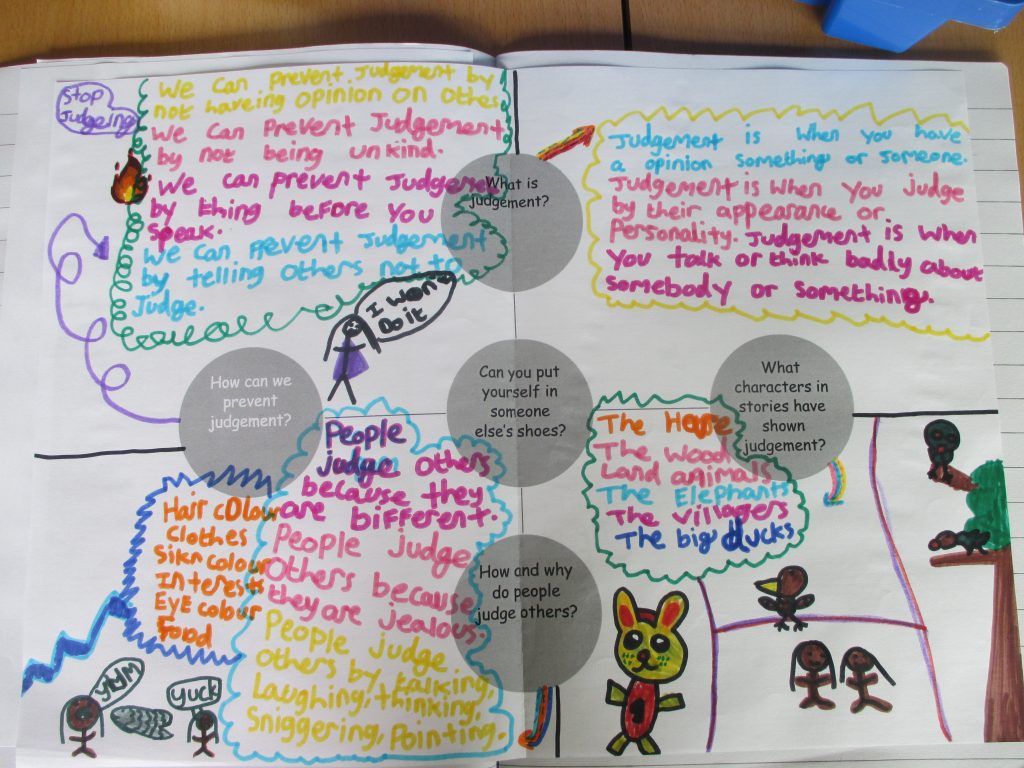 Stop
Judgeing
We can prevent judgement by
not haveing opinion on other
We can prevent Judgement
by not being unkind.
We can prevent Judgement
by thing before you
speak.
We can prevent Judgement
by telling others not to
Judge.
I won't
Do it
What is
judgement?
Judgement is when you have
a opinion something or someone.
Judgement is when you judge
by their appearance or
Personality. Judgement is when
you talk or think badly about
somebody or something.
How can we
prevent
judgement?
Can you put
yourself in
someone
else's shoes?
What
characters in
stories have
shown
judgement?
The Hare
The Wood
Land animals
The Elephants
The villagers
The big ducks
Hair colour
Clothes
Sikn colour
Interests
Eye colour
Food
People
judge others
because they
are bifferent.
People judge
others because
they are jealous.
People judge
others by talking,
Laughing, thinking,
Sniggering, Pointing.
How and why
do people
judge others?
yuck